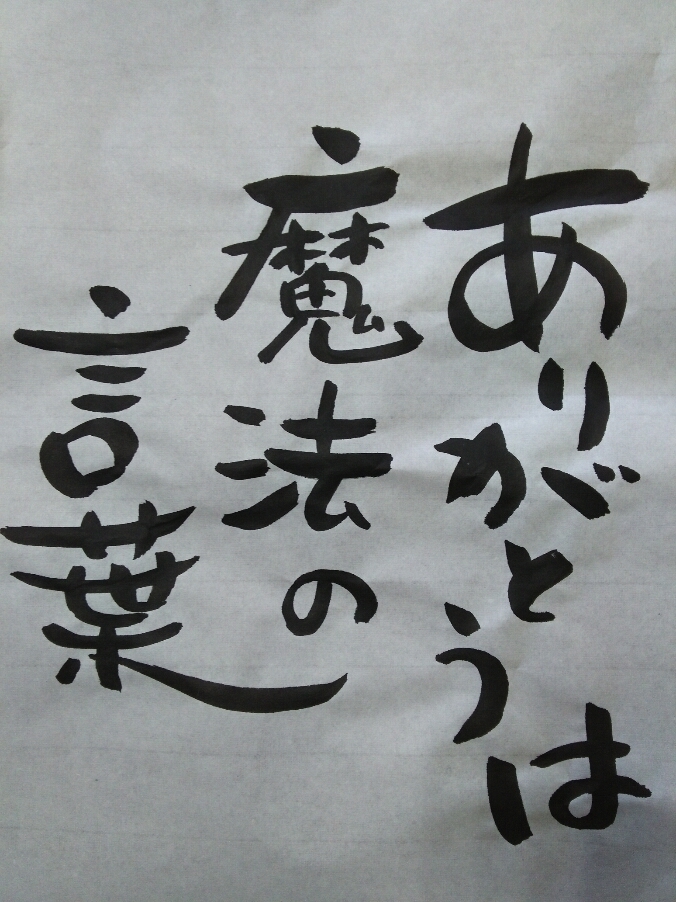 ありがとうは
魔法の
言葉